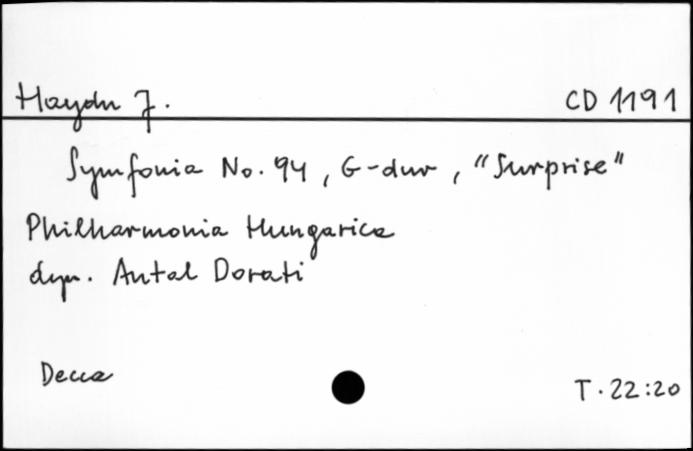 Haydn J. CD 1191
Symfonia No. 94, G-dur, "Surprise"
Philharmonia Hungarica
dyr. Antal Dorati
Decca T. 22:20